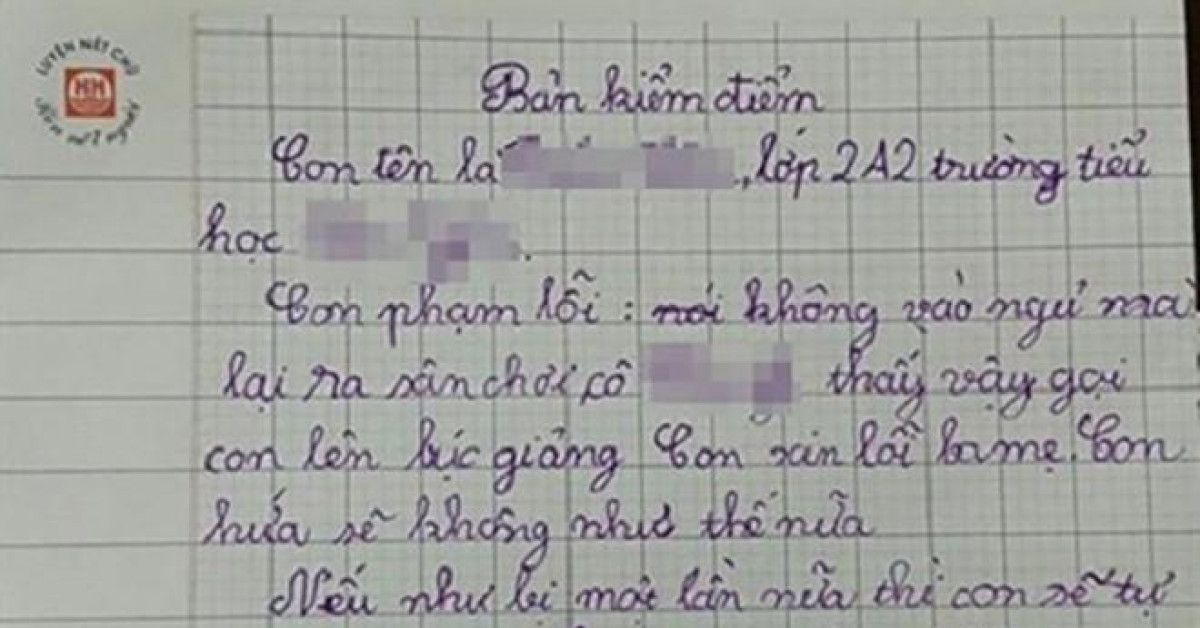 LUYỆN NÉT CHỮ
HH
Bản kiểm điểm
Con tên là , lớp 2A2 trường tiểu
học .
Con phạm lỗi : nói không vào ngủ mà
lại ra sân chơi cô thấy vậy gọi
con lên bục giảng Con xin lỗi ba mẹ. Con
hứa sẽ không như thế nữa
Nếu như bị một lần nữa thì con sẽ tự